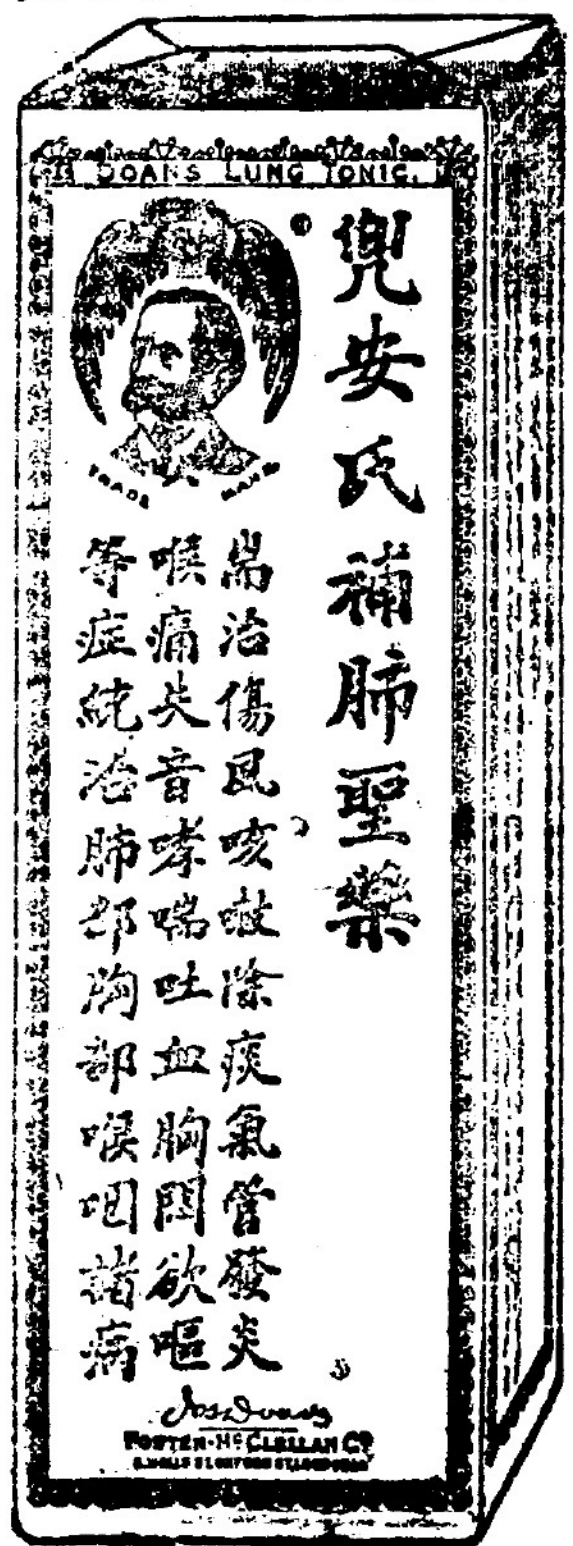 DOANS LUNG TONIC.
TRADE MARK
兜安氏補肺聖藥
耑治傷風咳嗽除痰氣管發炎
喉痛失音哮喘吐血胸悶欲嘔
等症統治肺部胸部喉咽諸病
Jas Doans
FOSTER-McCLELLAN CO.